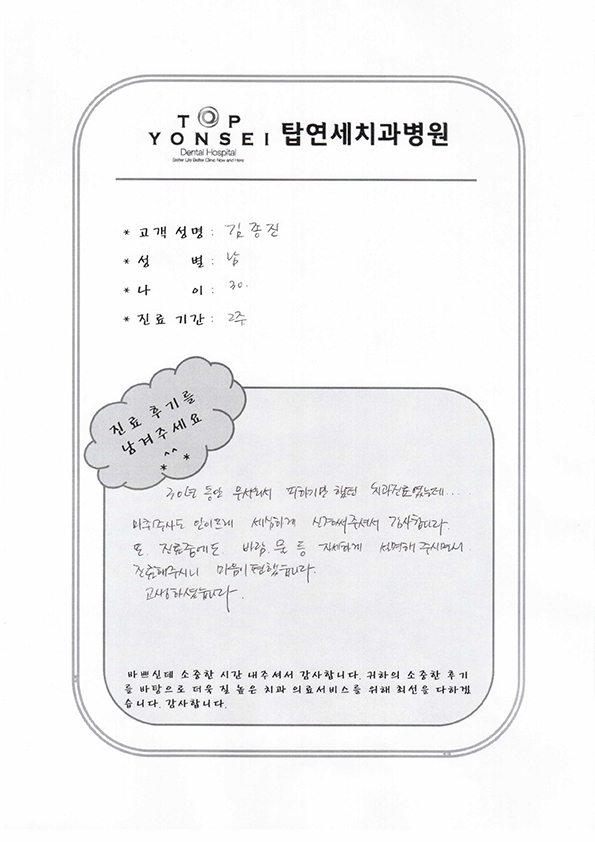 TOP
YONSEI 탑연세치과병원
Dental Hospital
Better Life Better Clinic Now and Here
* 고객 성명 : 김종진
* 성 별 : 남
* 나 이 : 30.
* 진료 기간 : 2주
진료 후기를
남겨주세요
^^
* *
30년 동안 무서워서 피하기만 했던 치과진료였는데.....
마취주사도 안아프게 세심하게 신경써주셔서 감사합니다.
또, 진료중에도 바람, 물 등 자세하게 설명해 주시면서
진료해주시니 마음이 편했습니다.
고생하셨습니다.
바쁘신데 소중한 시간 내주셔서 감사합니다. 귀하의 소중한 후기
를 바탕으로 더욱 질 높은 치과 의료서비스를 위해 최선을 다하겠
습니다. 감사합니다.